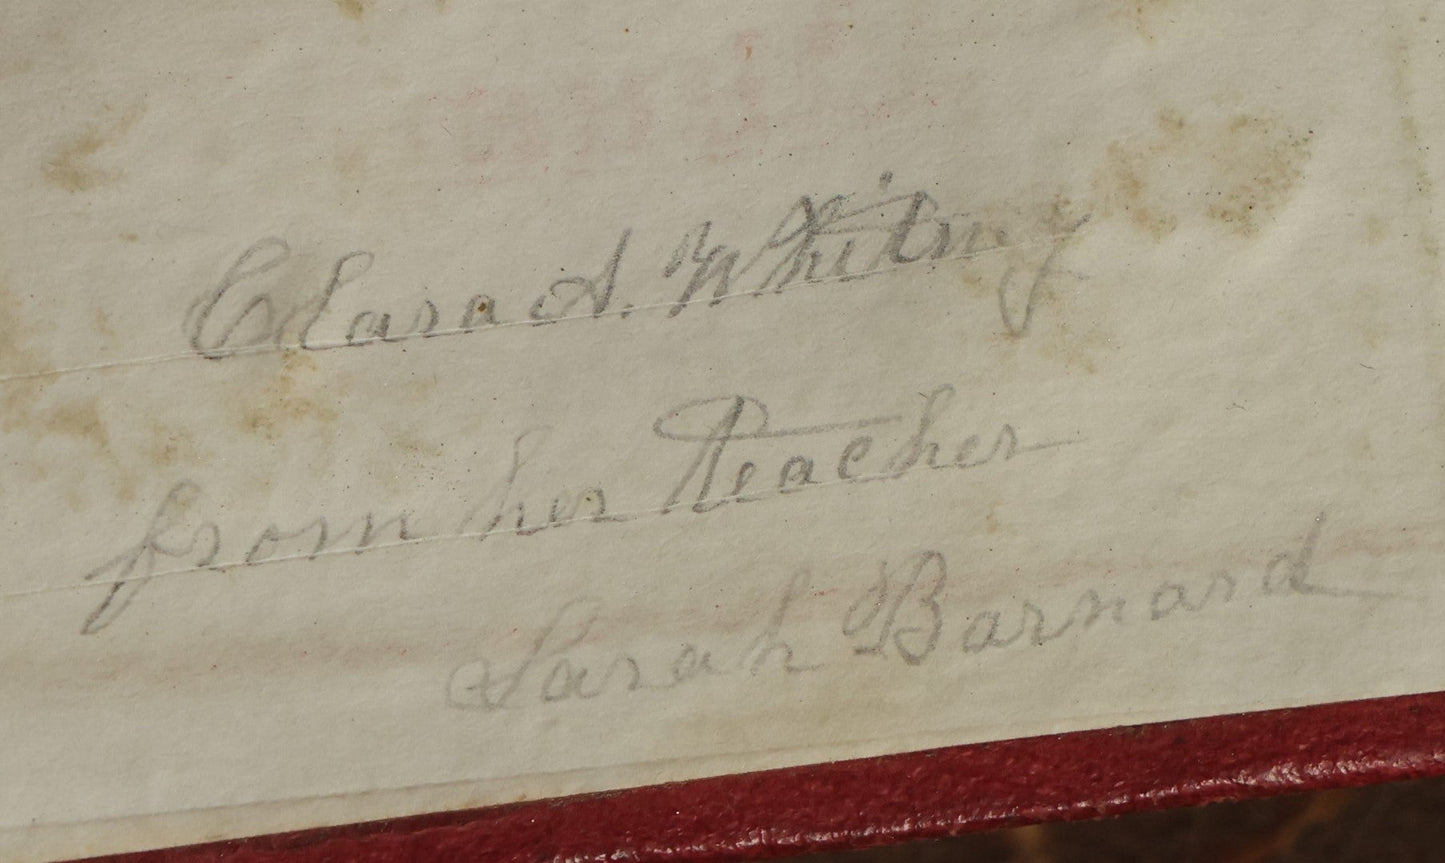 Clara A. Whitny
from her Teacher
Sarah Barnard